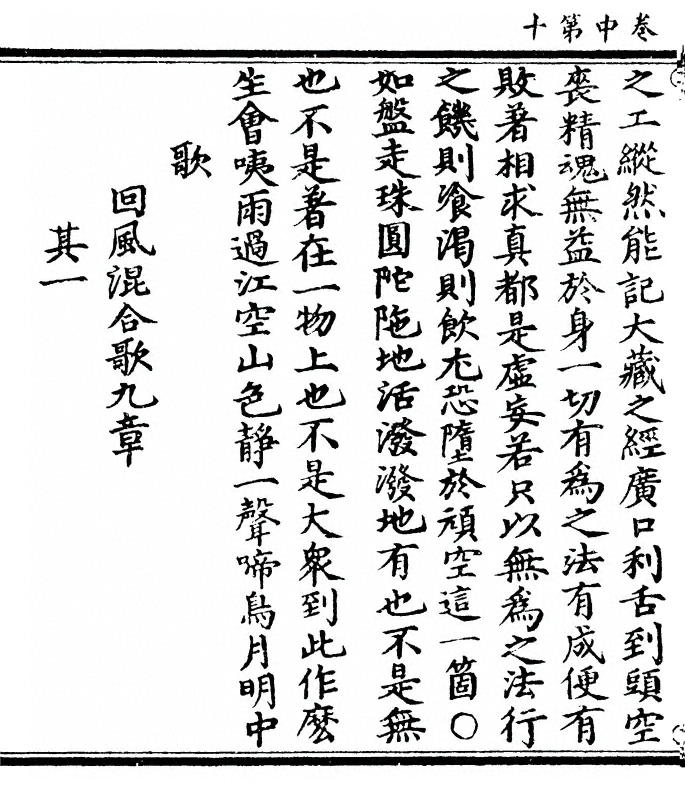 卷中第十
之工縱然能記大藏之經廣口利舌到頭空
喪精魂無益於身一切有為之法有成便有
敗著相求真都是虛妄若只以無為之法行
之饑則飡渴則飲尤恐墮於頑空這一箇〇
如盤走珠圓陀陁地活潑潑地有也不是無
也不是著在一物上也不是大衆到此作麽
生會咦雨過江空山色靜一聲啼鳥月明中
歌
回風混合歌九章
其一